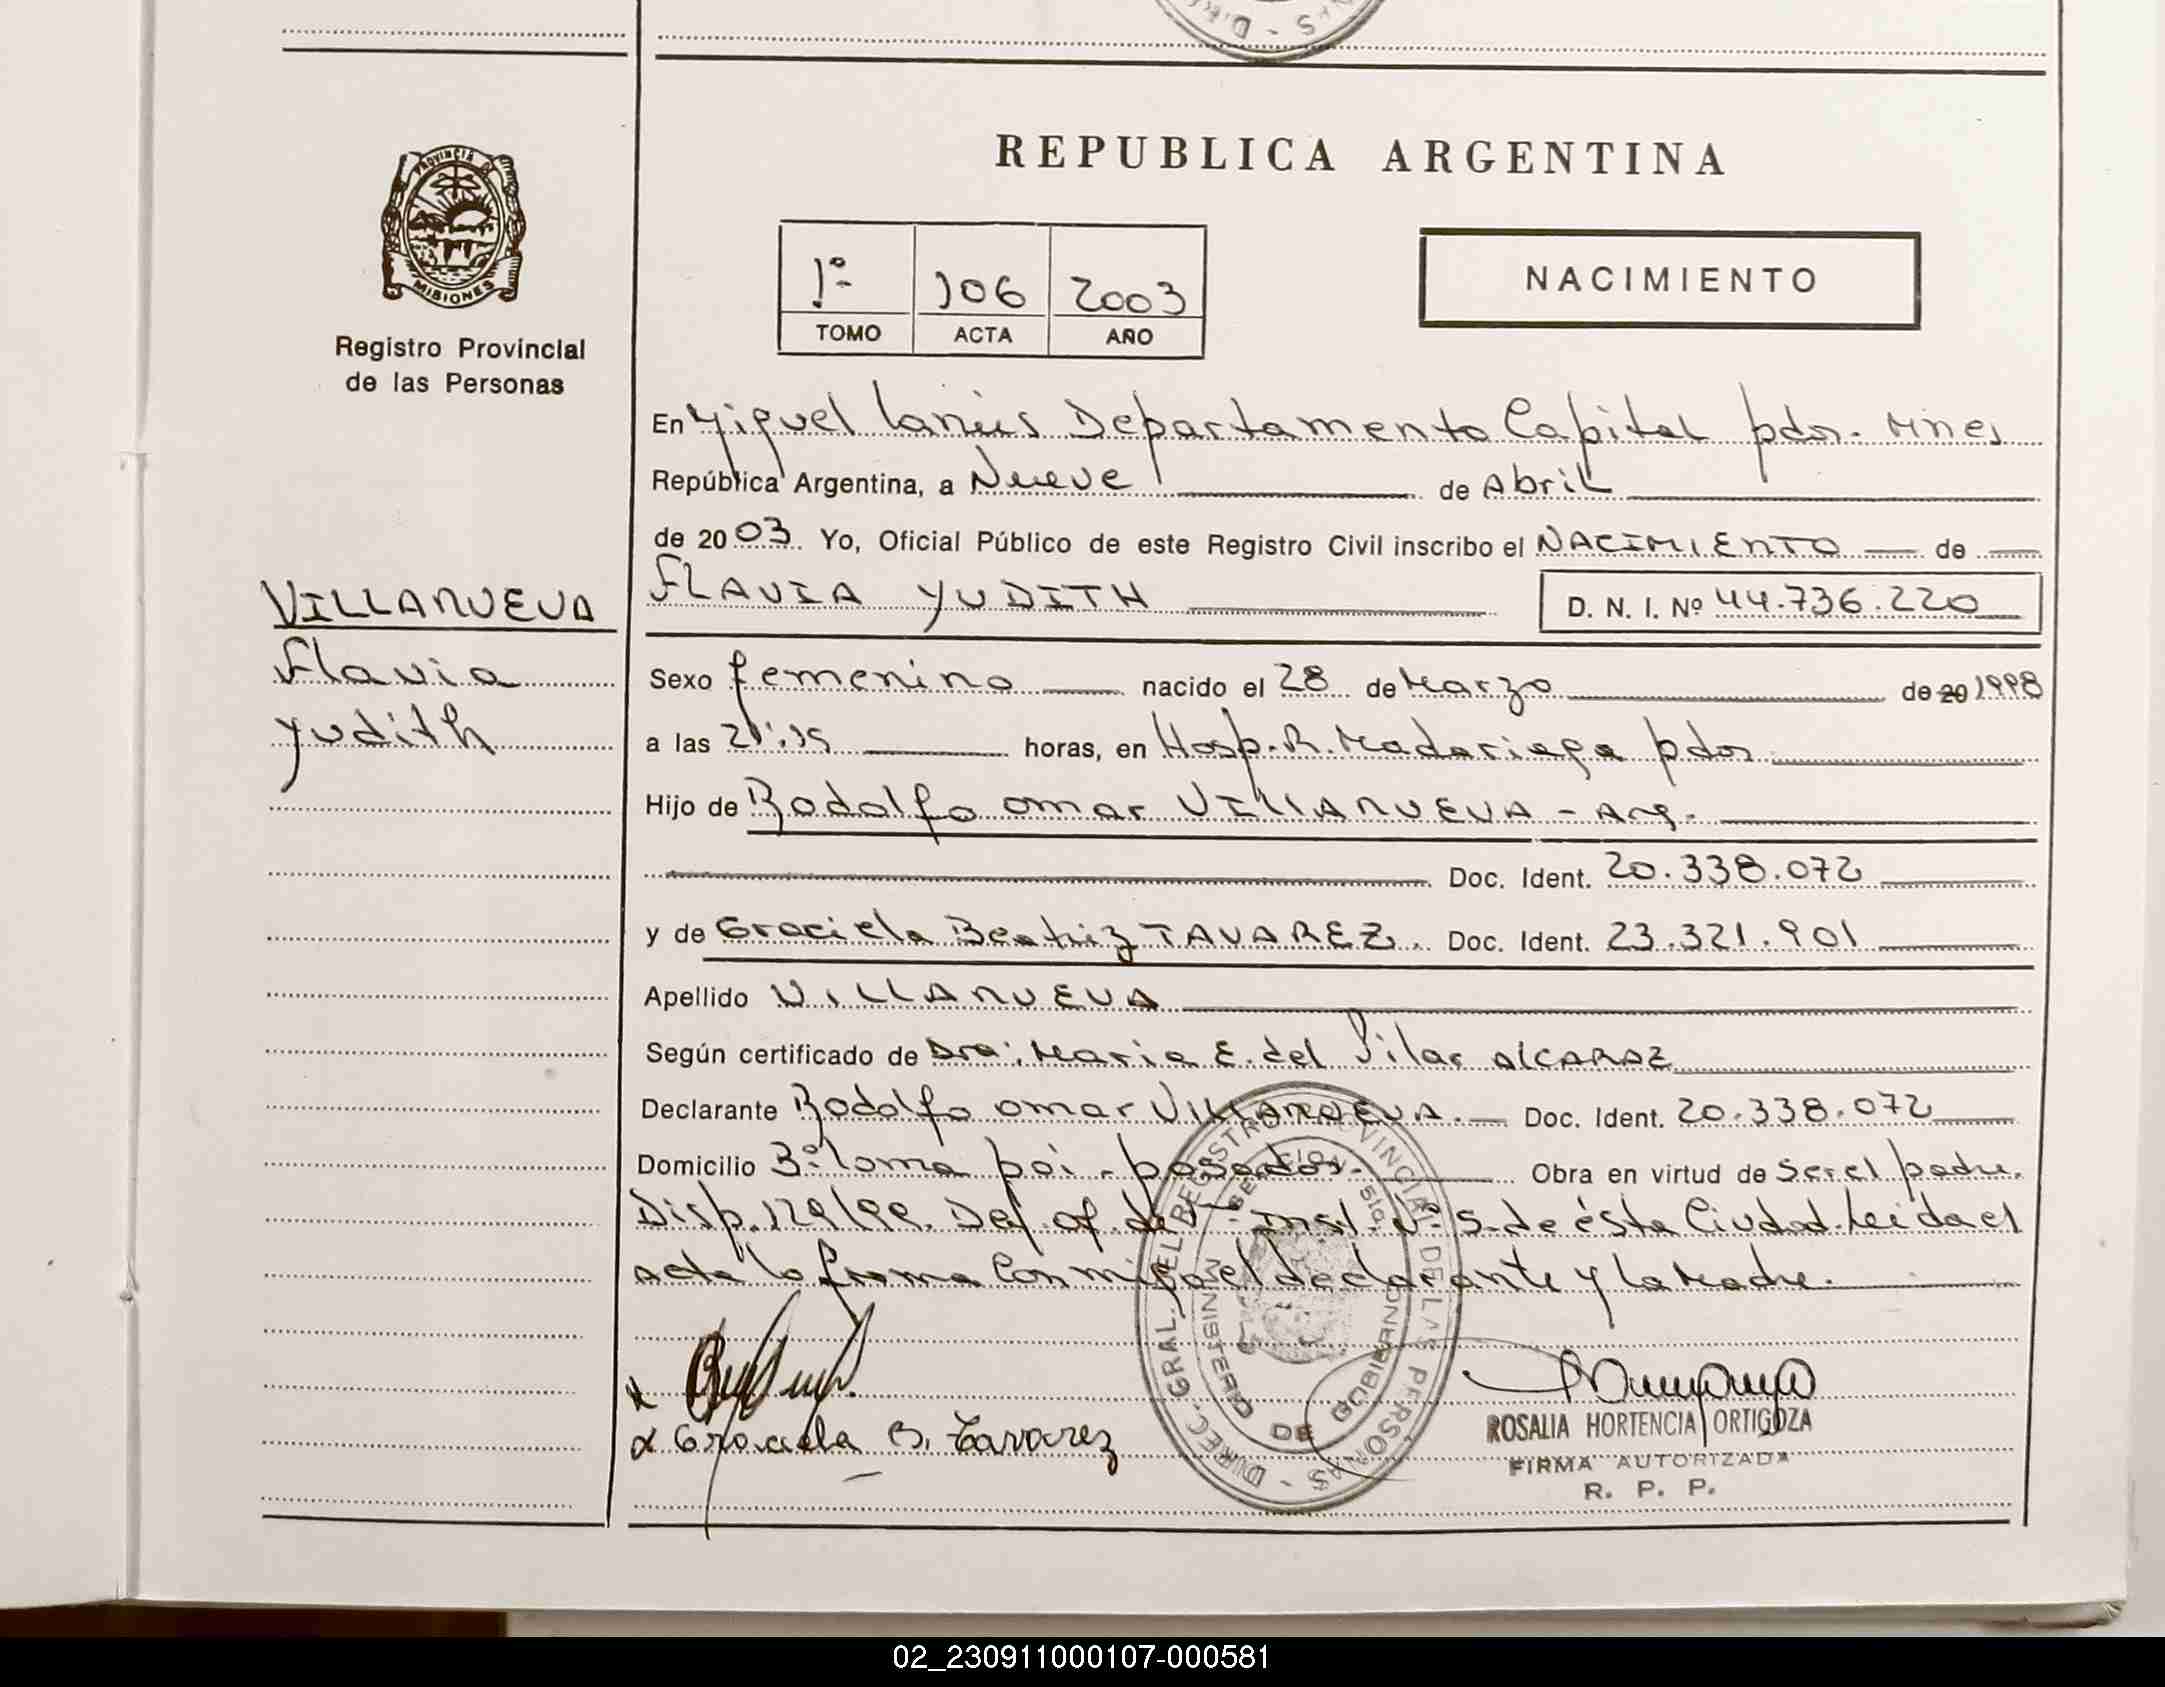 REPUBLICA ARGENTINA
PROVINCIA DE MISIONES
Registro Provincial
de las Personas
1º 106 2003
TOMO ACTA AÑO
NACIMIENTO
En Miguel Lanús Departamento Capital pdas. Mnes
República Argentina, a Nueve de Abril
de 2003. Yo, Oficial Público de este Registro Civil inscribo el NACIMIENTO de
FLAVIA YUDITH D. N. I. Nº 44.736.220
VILLANUEVA
Flavia
Yudith
Sexo femenino nacido el 28 de Marzo de 20 1998
a las 21:15 horas, en Hosp. R. Madariaga pdas
Hijo de Rodolfo Omar VILLANUEVA - Arg.
Doc. Ident. 20.338.072
y de Graciela Beatriz TAVAREZ. Doc. Ident. 23.321.901
Apellido VILLANUEVA
Según certificado de Dra: Maria E. del Pilar ALCARAZ
Declarante Rodolfo Omar VILLANUEVA. Doc. Ident. 20.338.072
Domicilio Bº Loma poi - posadas. Obra en virtud de ser el padre.
Disp. 129/99. Def. of. de 1º inst. Nº 5 de ésta Ciudad. Leida el
acta la firma Conmigo el declarante y la Madre.
x Graciela B. Tavarez
DIREC. GRAL. DEL REGISTRO PROVINCIAL DE LAS PERSONAS
MINISTERIO DE GOBIERNO
ROSALIA HORTENCIA ORTIGOZA
FIRMA AUTORIZADA
R. P. P.
02_230911000107-000581